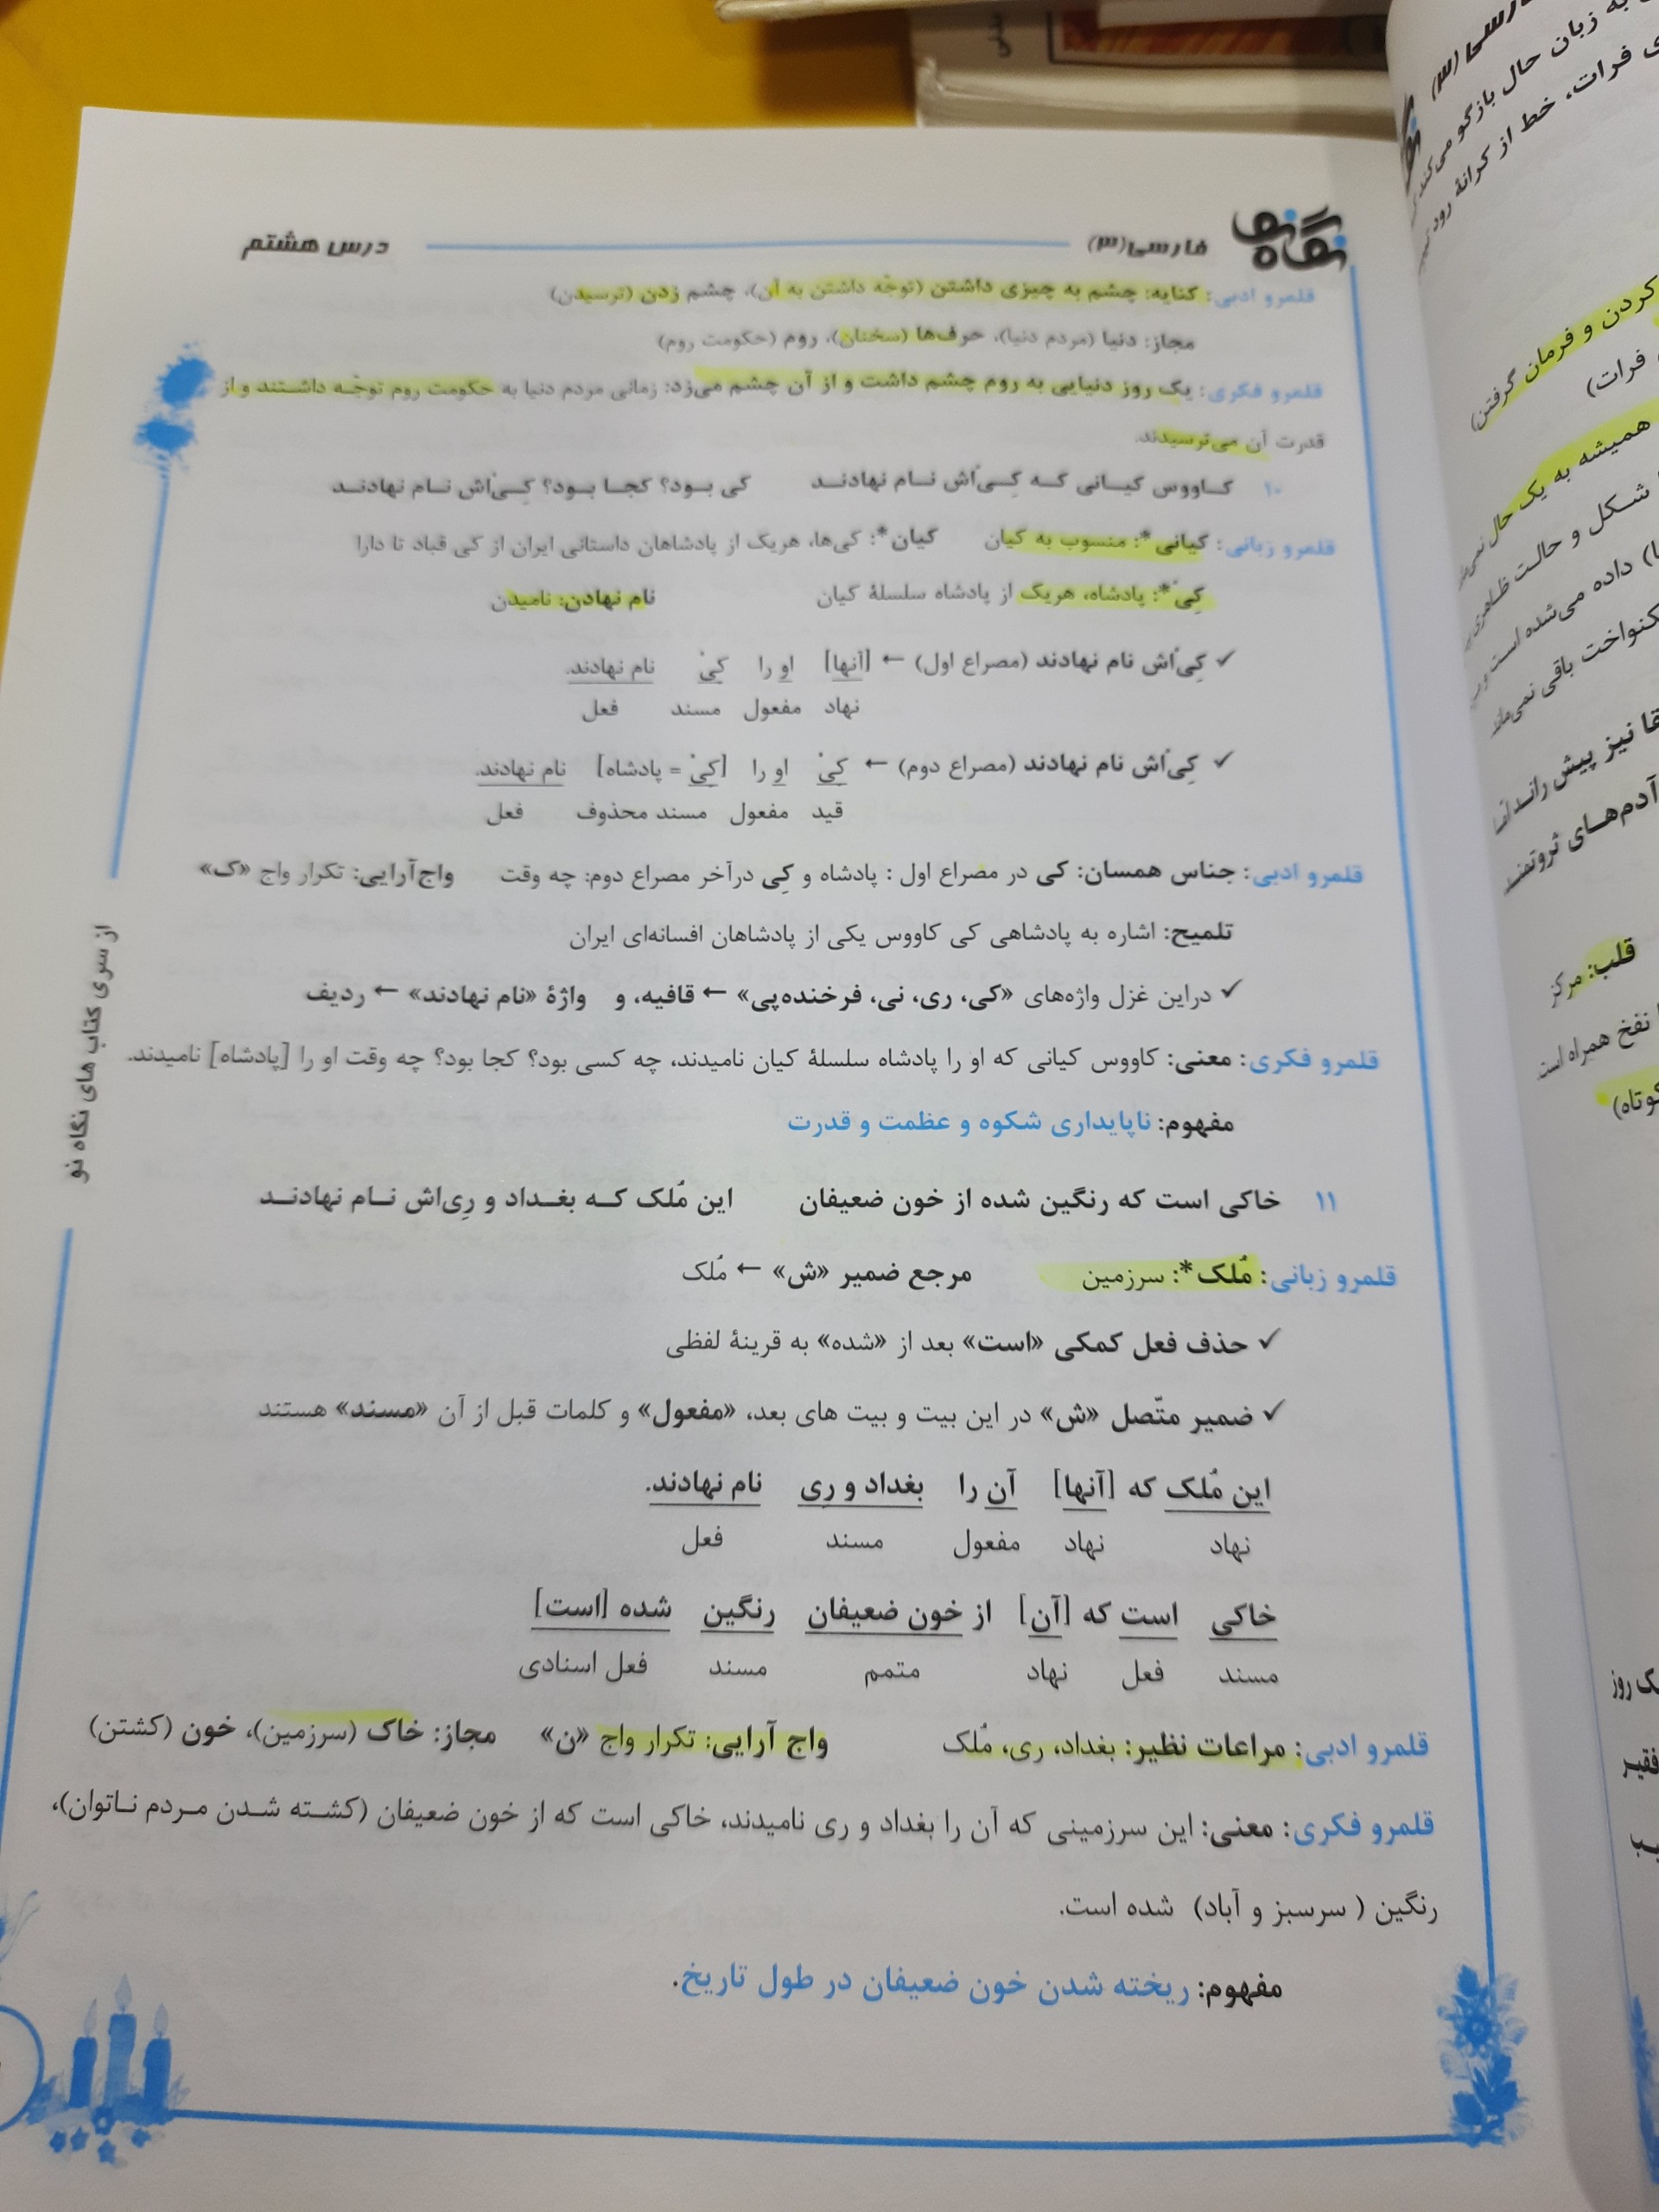 نگاه نو
فارسی (۳)
درس هشتم
قلمرو ادبی: کنایه: چشم به چیزی داشتن (توجّه داشتن به آن)، چشم زدن (ترسیدن)
مجاز: دنیا (مردم دنیا)، حرف‌ها (سخنان)، روم (حکومت روم)
قلمرو فکری: یک روز دنیایی به روم چشم داشت و از آن چشم می‌زد: زمانی مردم دنیا به حکومت روم توجّـه داشـتند و از
قدرت آن می‌ترسیدند.
۱۰ کـاووس کیـانی کـه کِـی‌اش نـام نهادنـد کی بـود؟ کجـا بـود؟ کِـی‌اش نـام نهادنـد
قلمرو زبانی: کیانی*: منسوب به کیان کیان*: کی‌ها، هریک از پادشاهان داستانی ایران از کی قباد تا دارا
کِی*: پادشاه، هریک از پادشاه سلسلهٔ کیان نام نهادن: نامیدن
✓ کِی‌اش نام نهادند (مصراع اول) ← [آنها] او را کِی نام نهادند.
نهاد مفعول مسند فعل
✓ کِی‌اش نام نهادند (مصراع دوم) ← کِی او را [کِی = پادشاه] نام نهادند.
قید مفعول مسند محذوف فعل
قلمرو ادبی: جناس همسان: کی در مصراع اول : پادشاه و کِی درآخر مصراع دوم: چه وقت واج‌آرایی: تکرار واج «ک»
تلمیح: اشاره به پادشاهی کی کاووس یکی از پادشاهان افسانه‌ای ایران
✓ دراین غزل واژه‌های «کی، ری، نی، فرخنده‌پی» ← قافیه، و واژهٔ «نام نهادند» ← ردیف
قلمرو فکری: معنی: کاووس کیانی که او را پادشاه سلسلهٔ کیان نامیدند، چه کسی بود؟ کجا بود؟ چه وقت او را [پادشاه] نامیدند.
مفهوم: ناپایداری شکوه و عظمت و قدرت
۱۱ خاکی است که رنگین شده از خون ضعیفان این مُلک کـه بغـداد و رِی‌اش نـام نهادنـد
قلمرو زبانی: مُلک*: سرزمین مرجع ضمیر «ش» ← مُلک
✓ حذف فعل کمکی «است» بعد از «شده» به قرینهٔ لفظی
✓ ضمیر متّصل «ش» در این بیت و بیت های بعد، «مفعول» و کلمات قبل از آن «مسند» هستند
این مُلک که [آنها] آن را بغداد و رِی نام نهادند.
نهاد نهاد مفعول مسند فعل
خاکی است که [آن] از خون ضعیفان رنگین شده [است]
مسند فعل نهاد متمم مسند فعل اسنادی
قلمرو ادبی: مراعات نظیر: بغداد، ری، مُلک واج آرایی: تکرار واج «ن» مجاز: خاک (سرزمین)، خون (کشتن)
قلمرو فکری: معنی: این سرزمینی که آن را بغداد و ری نامیدند، خاکی است که از خون ضعیفان (کشـته شـدن مـردم نـاتوان)،
رنگین ( سرسبز و آباد) شده است.
مفهوم: ریخته شدن خون ضعیفان در طول تاریخ.
از سری کتاب های نگاه نو
فارسی (۳)
به زبان حال بازگو می‌کند
ی فرات، خط از کرانهٔ رود
کردن و فرمان گرفتن)
فرات)
همیشه به یک حال
شـکل و حالـت ظـاهری
داده می‌شده است و
کنواخت باقی نمی‌ماند
قا نیز پیش رانـد
آدم‌هـای ثروتمنـد
قلب: مرکز
نفخ همراه است
کوتاه)
ک روز
فقیـر